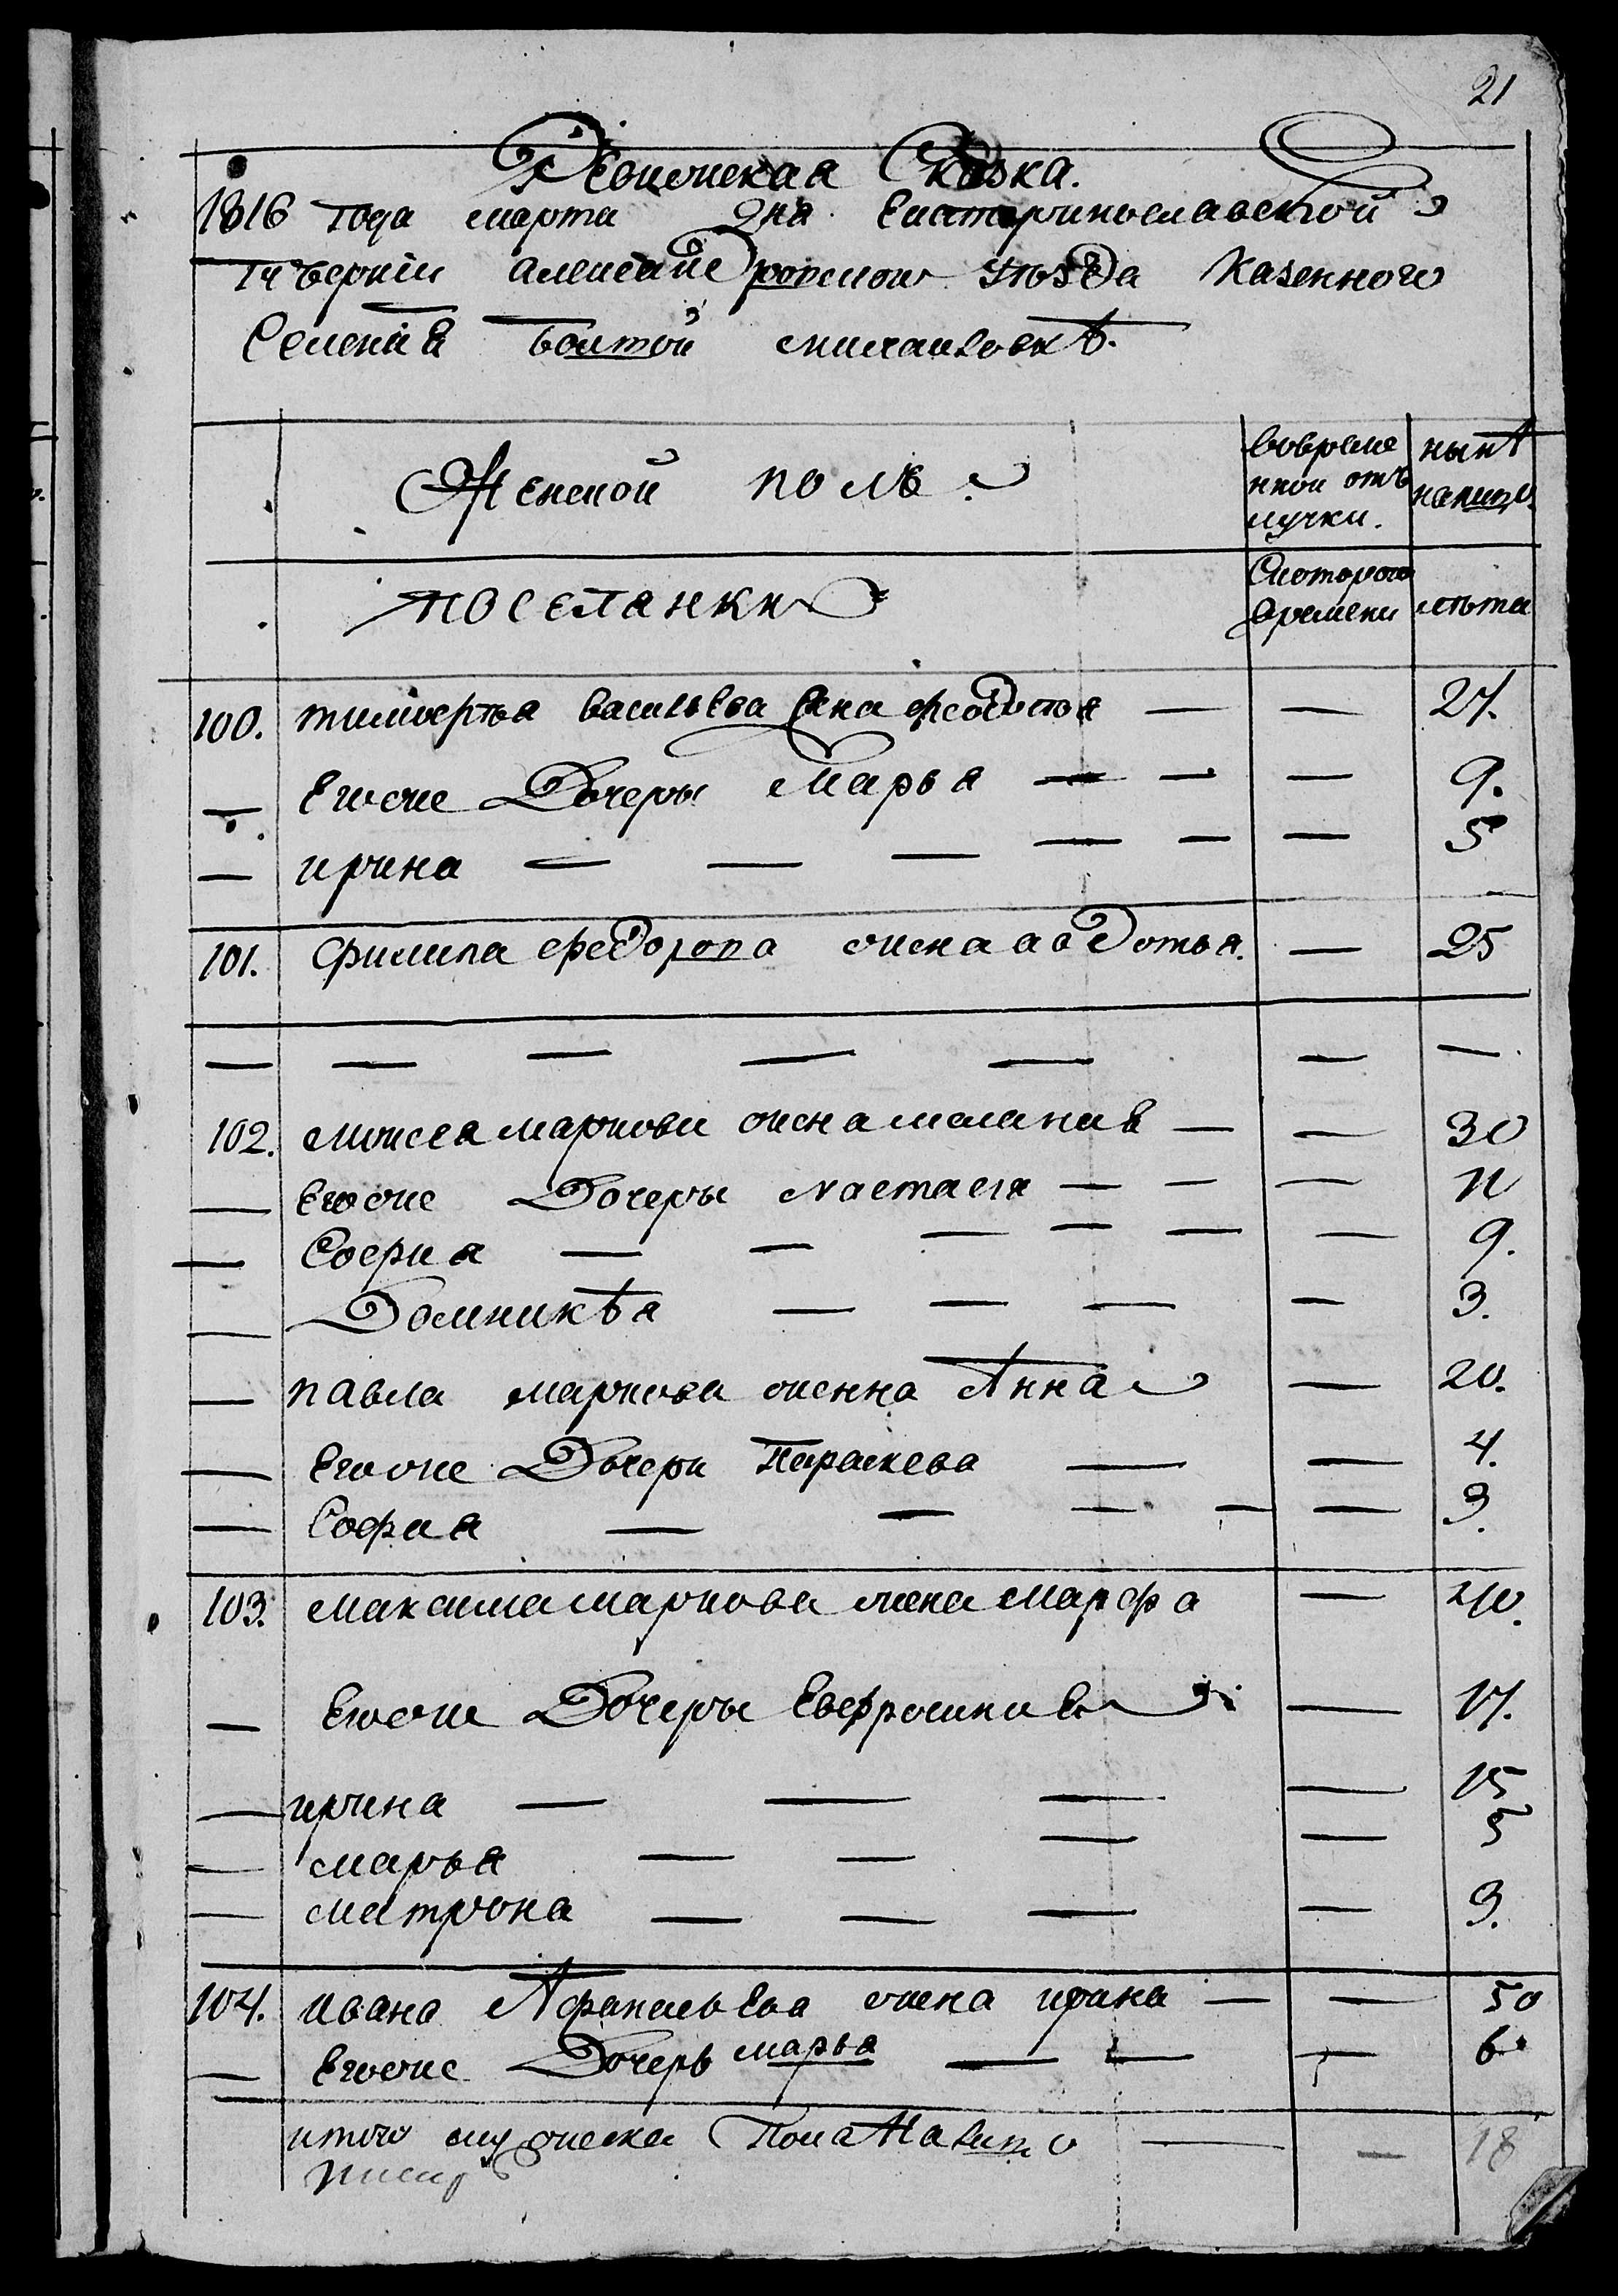 21
Ревижская Сказка.
1816 года марта дня Екатеринославской
Губерніи Александровского уѣзда Казенного
Селенія Михаиловкѣ.
Женской полъ.
вовреме нной отъ лучки.
нынѣ налицо.
поселянки
Скоторого времени
лѣта
100. тимоѳея васильева жена федосья — — 27.
— Егоже Дочеры Марья — — — 9.
— ирина — — — — — — 5
101. филипа федорова жена авдотья. — 25
— — — — — — —
102. моисея маркова жена малания — — 30
— Егоже Дочеры Настасия — — — 11
— София — — — — — — 9.
— Домникѣя — — — — 3.
— павла маркова женна Анна — 20.
— Егоже Дочери Параскева — — 4.
— София — — — — — 3.
103. максима маркова жена марфа — 40.
— Егоже Дочеры Евфросиния — 17.
— ирина — — — — 15
— марья — — — — 5
— матрона — — — — 3.
104. ивана Афанасьева жена ирина — — 50
— Егоже Дочерь марья — — — 6.
итого женска Пола На лицо — — 18